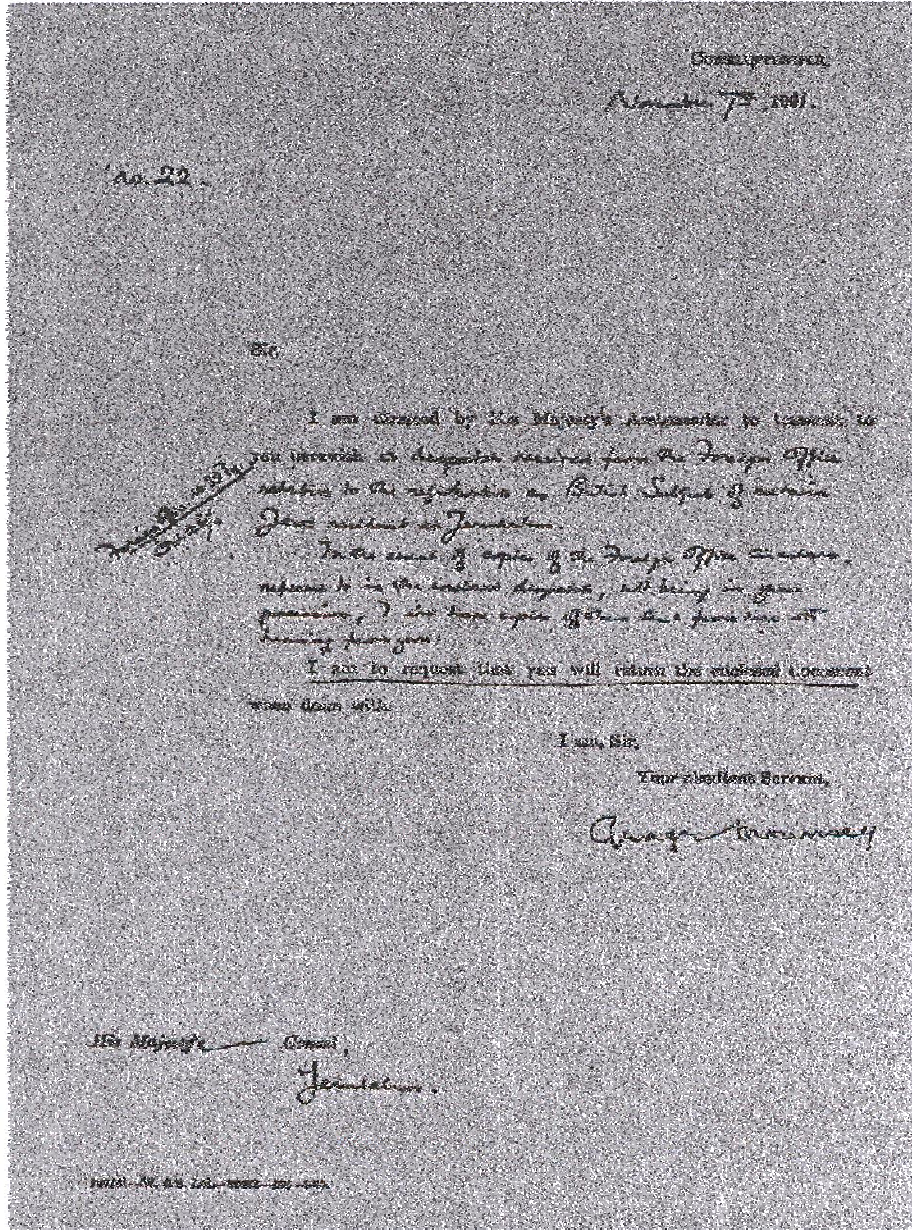 Constantinople,
November 7th 1901.
No. 22.
Sir,
I am directed by His Majesty's Ambassador to transmit to
you herewith a despatch received from the Foreign Office
relative to the registration as British Subjects of certain
Jews resident at Jerusalem.
In the event of copies of the Foreign Office
referred to in the enclosed despatch, not being in your
possession, I
hearing from you.
I am to request that you will return the enclosed document
when done with.
I am, Sir,
Your obedient Servant,
His Majesty's Consul,
Jerusalem.